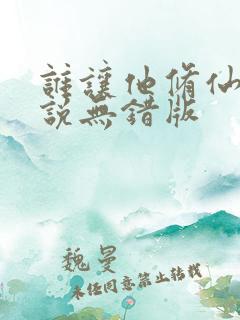 誰讓他修仙
說無錯版
魏曼
未经同意禁止转载